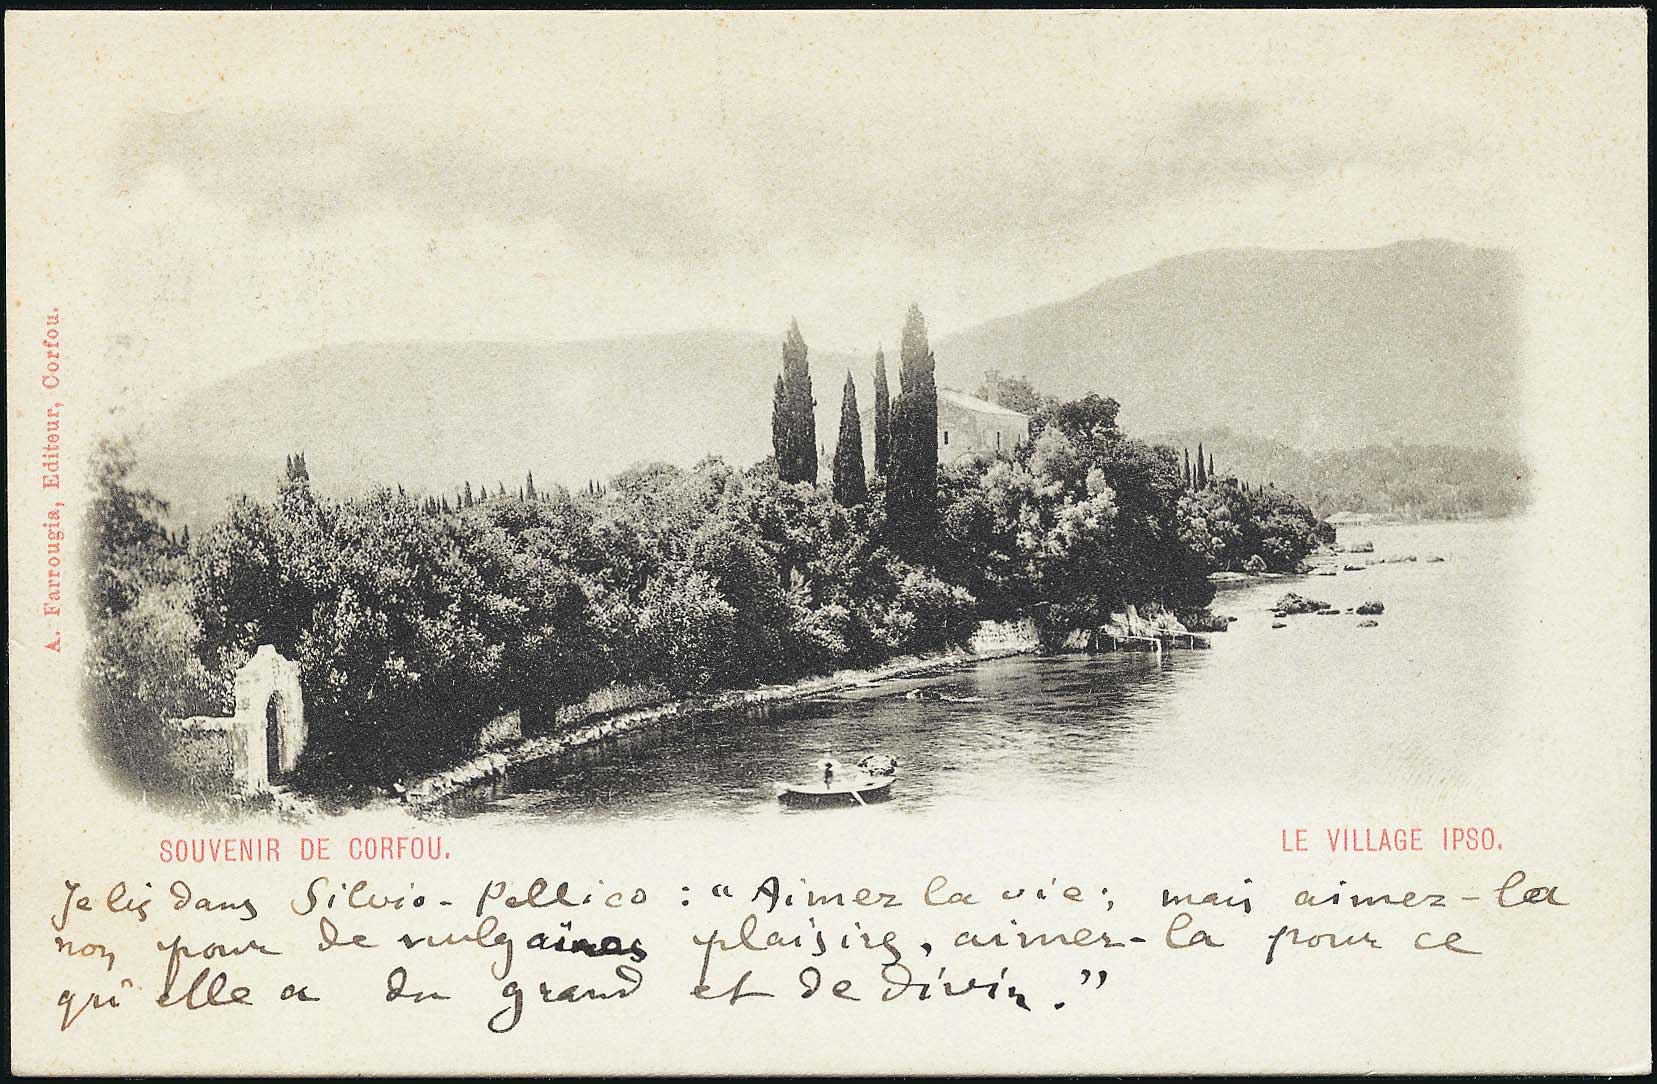 A. Farrougia, Editeur, Corfou.
SOUVENIR DE CORFOU.
LE VILLAGE IPSO.
Je lis dans Silvio-Pellico : "Aimez la vie ; mais aimez-la
non pour de vulgaires plaisirs, aimez-la pour ce
qu'elle a du grand et de divin."